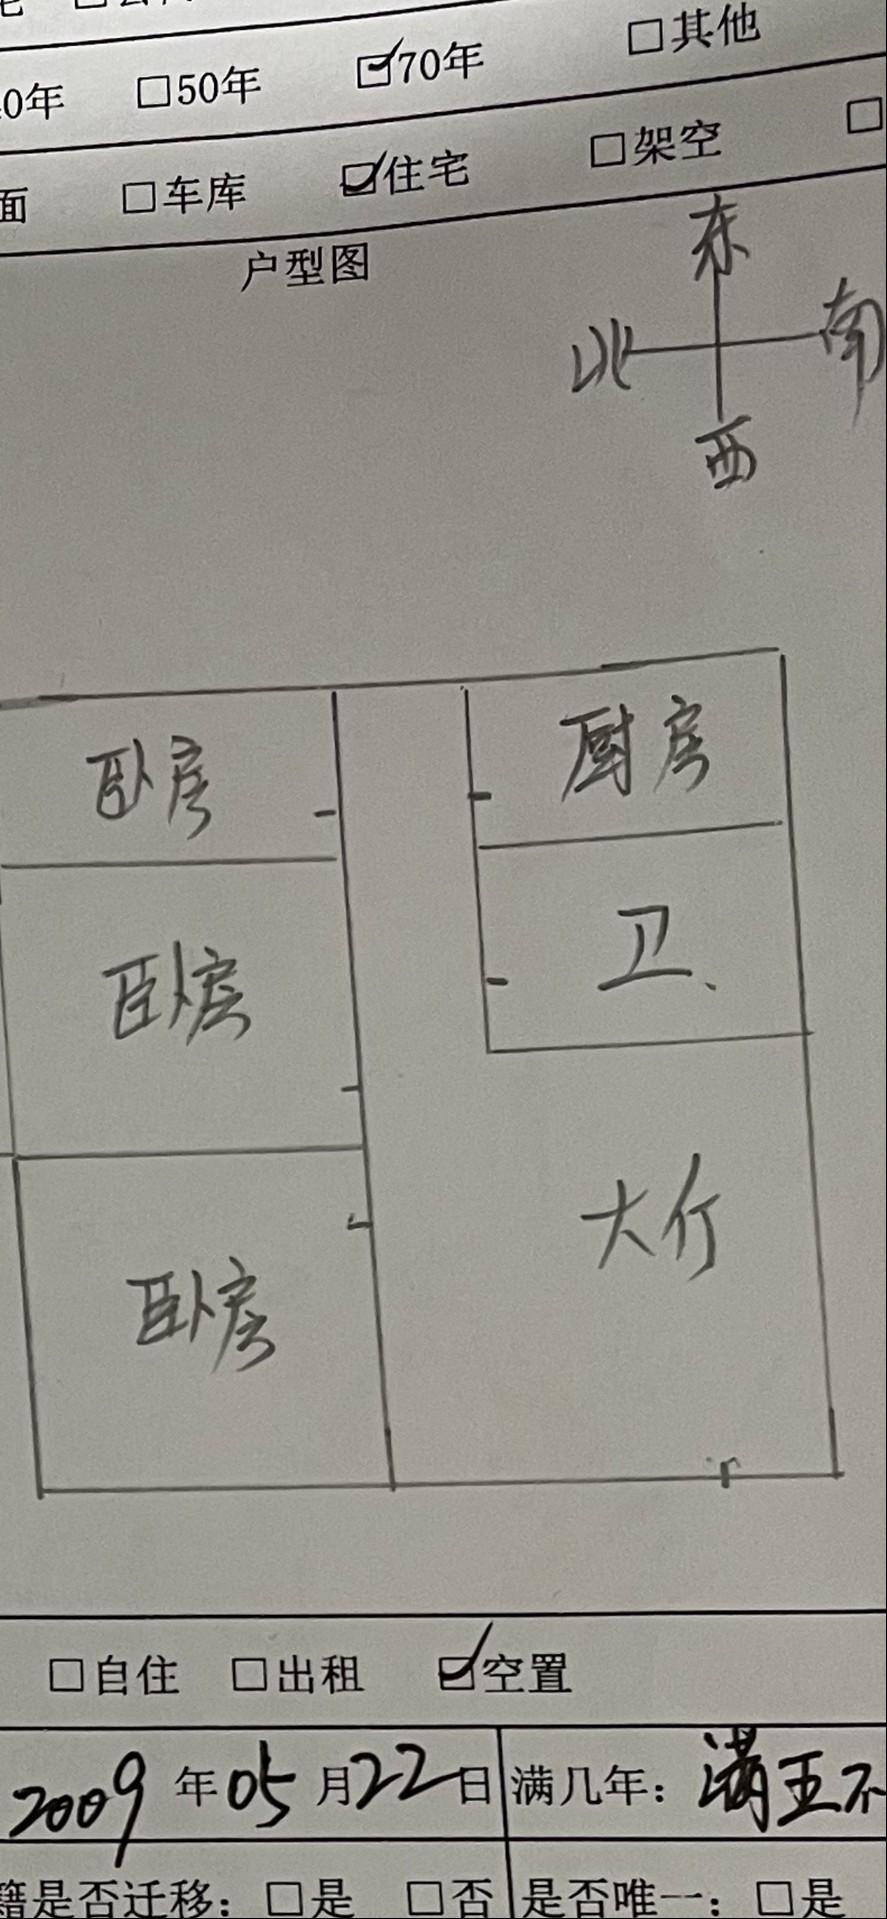 0年 □50年 ☑70年 □其他
面 □车库 ☑住宅 □架空 □
户型图
东
北 南
西
卧房 厨房
卧房 卫、
大厅
卧房
□自住 □出租 ☑空置
2009年05月22日 满几年：满五不
籍是否迁移：□是 □否 是否唯一：□是